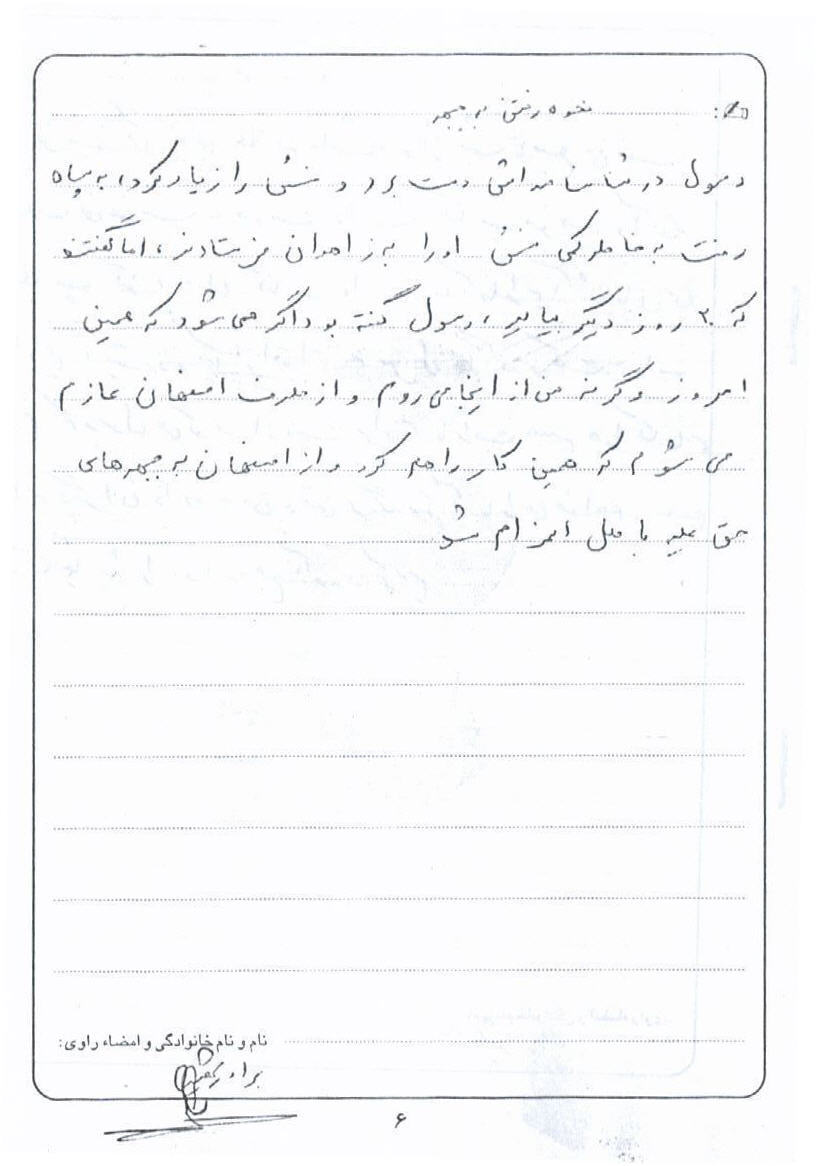 نحوه رفتن به جبهه
رسول در شناسنامه‌اش دست برد و سنش را زیاد کرد، به سپاه
رفت به خاطر کمی سنش او را به زاهدان فرستادند، اما گفتند
که ۲۰ روز دیگر بیایید، رسول گفته بود اگر می شود که همین
امروز وگرنه من از اینجا می روم و از طرف اصفهان عازم
می شوم که همین کار را هم کرد و از اصفهان به جبهه های
حق علیه باطل اعزام شد
نام و نام خانوادگی و امضاء راوی:
برادر شهید
۶